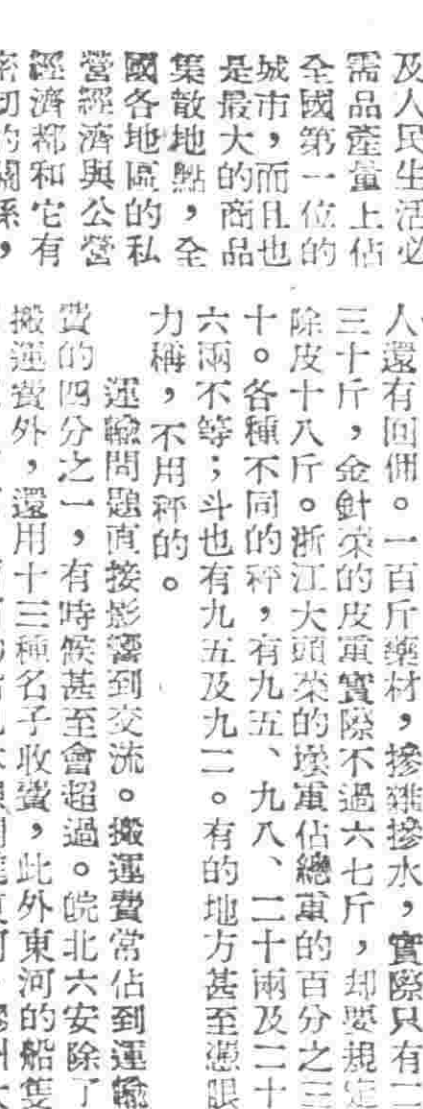 及人民生活必
需品產量上佔
全國第一位的
城市，而且也
是最大的商品
集散地點，全
國各地區的私
營經濟與公營
經濟都和它有
密切的關係，
人還有回佣。一百斤藥材，摻雜摻水，實際只有二
三十斤，金針菜的皮重實際不過六七斤，却要規定
除皮十八斤。浙江大頭菜的罎重佔總重的百分之三
十。各種不同的秤，有九五、九八、二十兩及二十
六兩不等；斗也有九五及九二。有的地方甚至憑眼
力稱，不用秤的。
運輸問題直接影響到交流。搬運費常佔到運輸
費的四分之一，有時候甚至會超過。皖北六安除了
搬運費外，還用十三種名子收費，此外東河的船隻